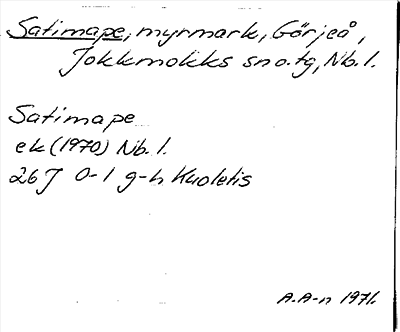 Satimape, myrmark, Görjeå,
Jokkmokks sn o. tg, Nb. l.
Satimape
ek (1970) Nb. l.
26J 0-1 g-h Kuoletis
A.A-n 1971.